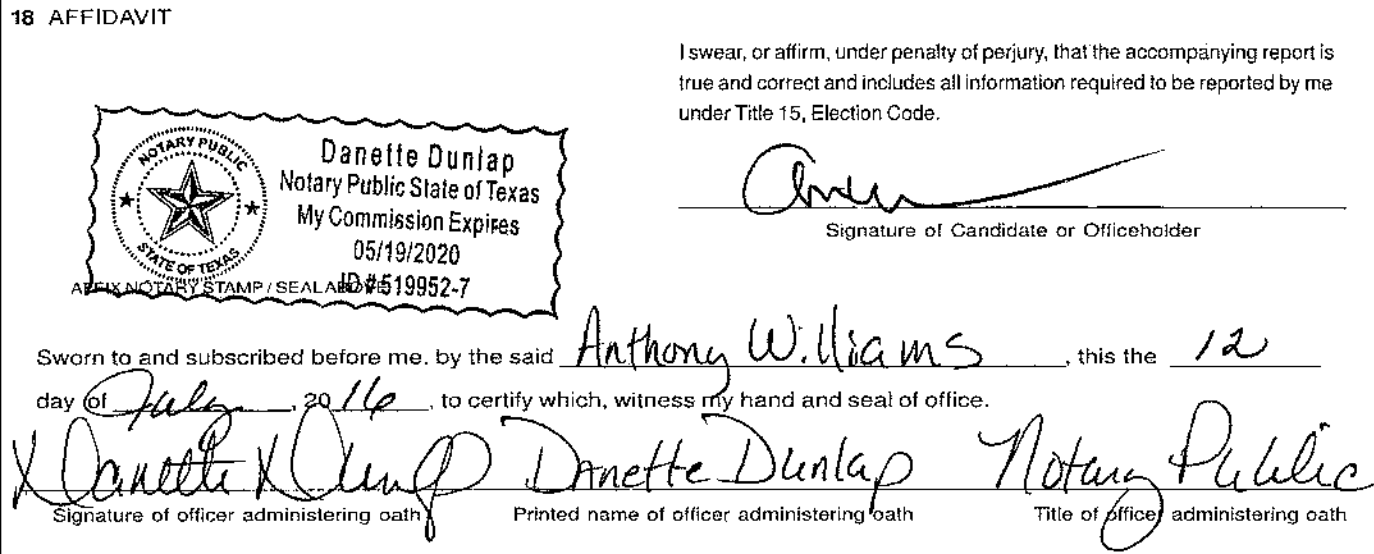 18 AFFIDAVIT
I swear, or affirm, under penalty of perjury, that the accompanying report is
true and correct and includes all information required to be reported by me
under Title 15, Election Code.
NOTARY PUBLIC
STATE OF TEXAS
Danette Dunlap
Notary Public State of Texas
My Commission Expires
05/19/2020
ID#519952-7
Signature of Candidate or Officeholder
AFFIX NOTARY STAMP / SEAL ABOVE
Sworn to and subscribed before me, by the said Anthony Williams, this the 12
day of July, 2016, to certify which, witness my hand and seal of office.
Danette Dunlap Danette Dunlap Notary Public
Signature of officer administering oath Printed name of officer administering oath Title of officer administering oath